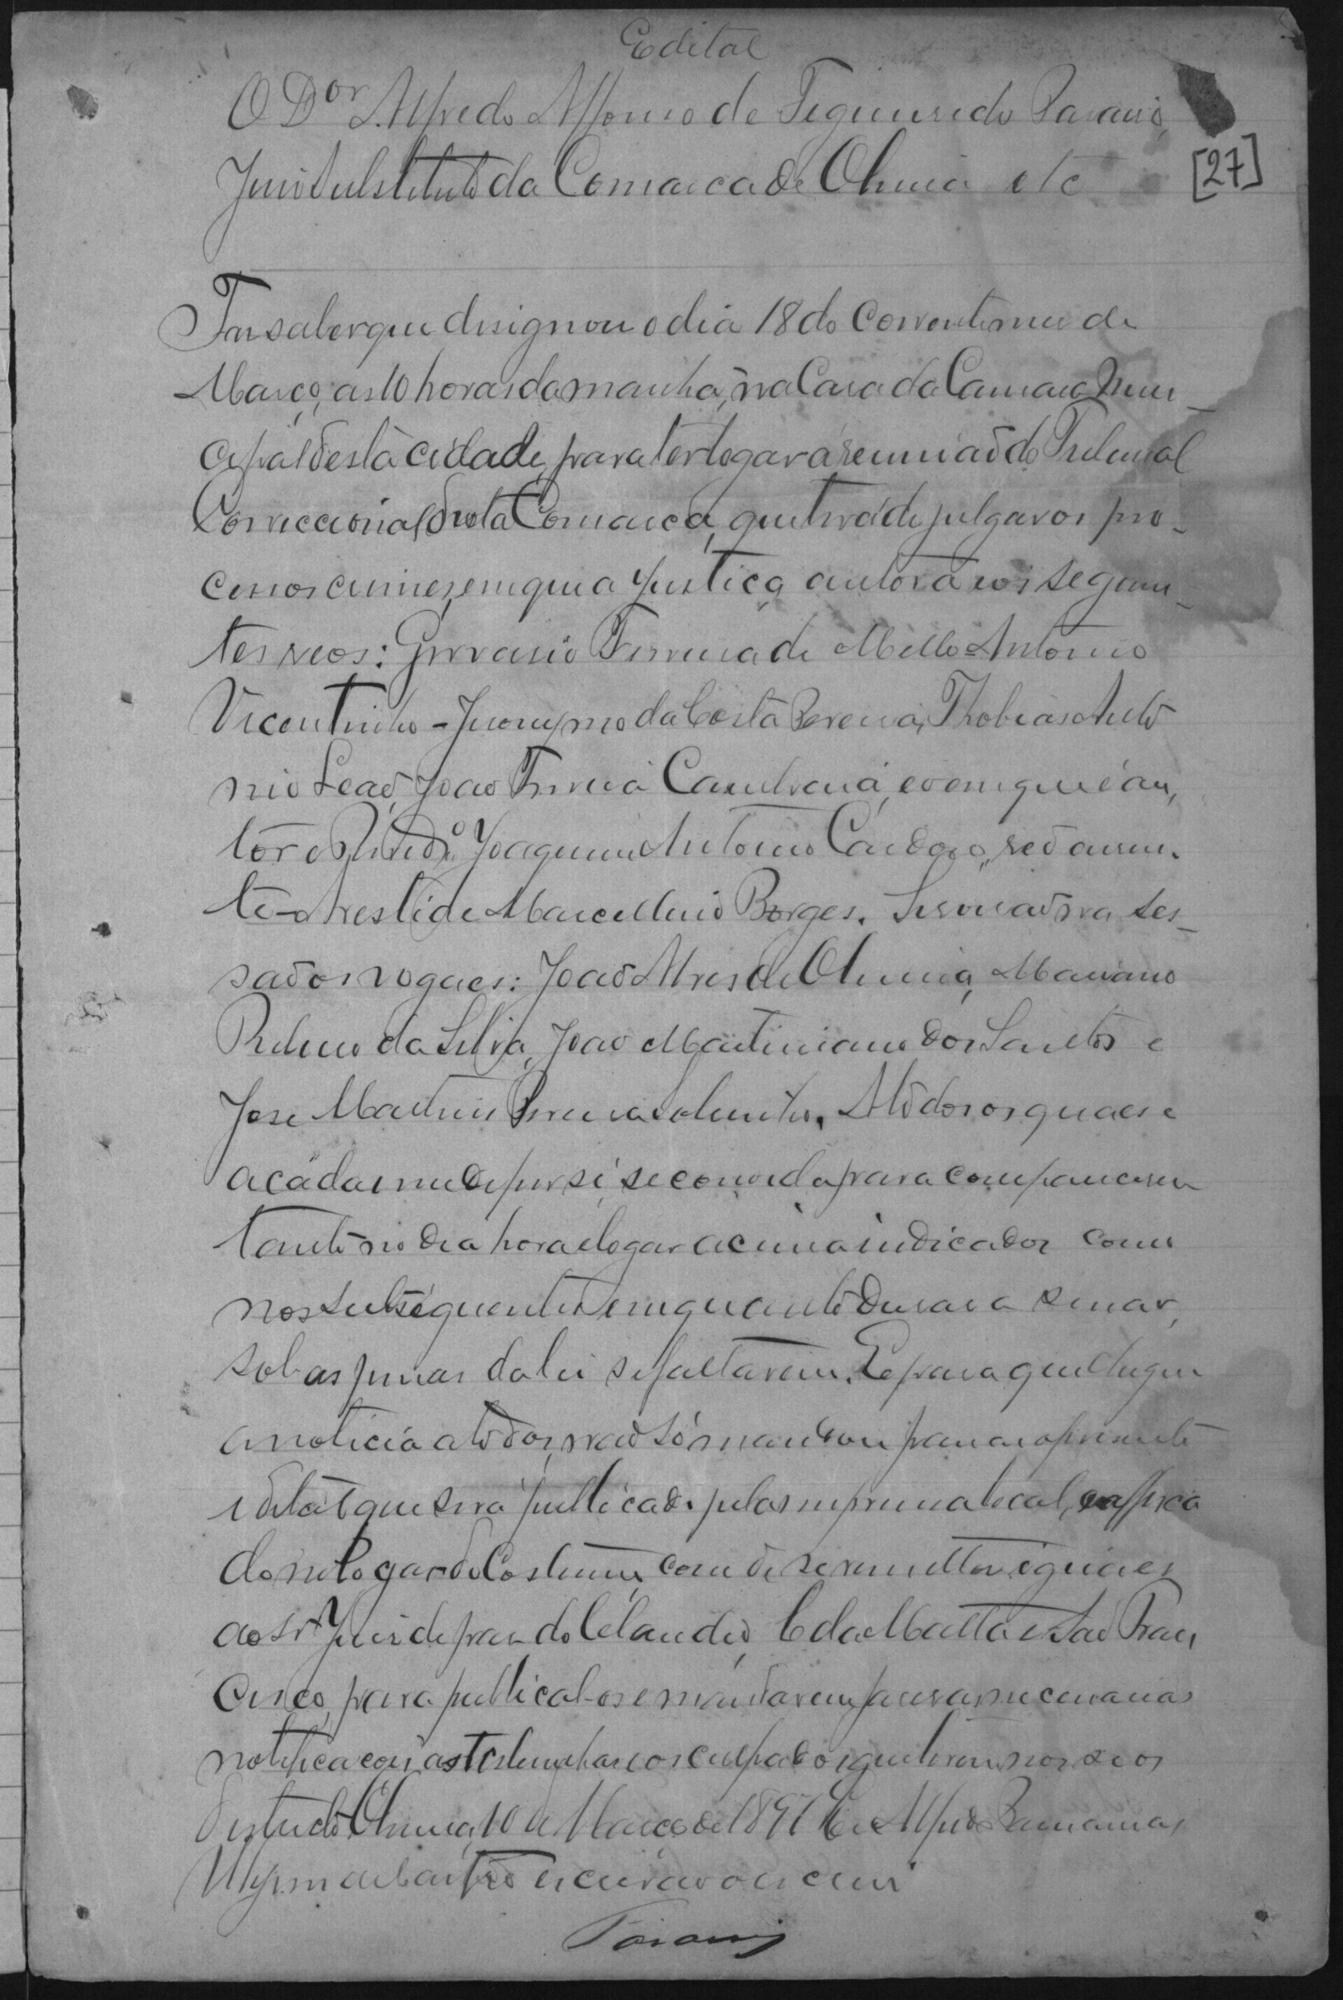 Edital
O Dor Alfredo Affonso de Figueiredo Paraiso,
Juiz Substituto da Comarca de Oliveira etc
[27]
Faz saber que designou o dia 18 do corrente mez de
Março, as 10 horas da manhã, na Casa da Camara Muni_
cipal desta cidade, para ter logar a reunião do Tribunal
Correccional desta Comarca, que terá de julgar os pro_
cessos crimes, em que a Justiça autora e os seguin_
tes reos: Gervasio Ferreira de Mello Antonio
Vicentinho - Jeronymo da Costa Pereira, Thobias Anto
nio Leão, João Ferreira Candeia, e o em que é au,
tor o Joaquim Antonio Cardoso, reo ausen.
te Marcellino Borges. Servirão na ses_
são os vogaes: João Alves de Oliveira, Mariano
Ribeiro da Silva, João Martiniano dos Santos e
José Martins Pereira Sobrinho. A todos os quaes e
a cada um de per si, se convida para comparecerem
tanto no dia hora e logar acima indicados como
nos subsequentes emquanto durar a
sob as penas da lei se faltarem. E para que chegue
a noticia a todos, não só mandou passar o presente
edital que será publicado pela imprensa local, e affixa
do no logar do Costume, como de se remetter iguaes
aos Srs Juiz de paz do Claudio, C da Matta e São Fran,
cisco, para publical-os e mandarem fazer as necessarias
notificações as testemunhas e os culpados que tiverem nos seos
Districtos Oliveira, 10 de Março de 1897 Eu Alfredo
de Castro escrivão o escrevi
Paraiso